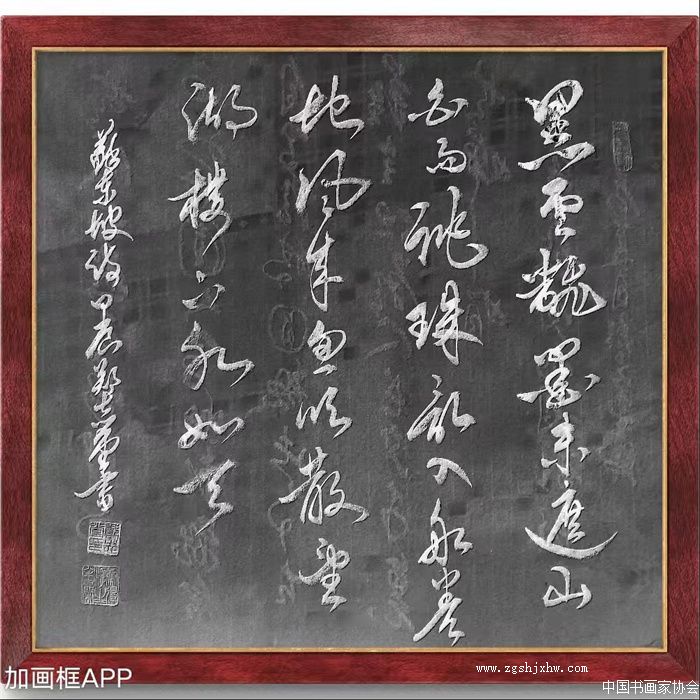 黑雲翻墨未遮山
白雨跳珠亂入船卷
地風來忽吹散望
湖樓下水如天
蘇東坡詩甲辰書
加画框APP
www.zgshjxhw.com
中国书画家协会